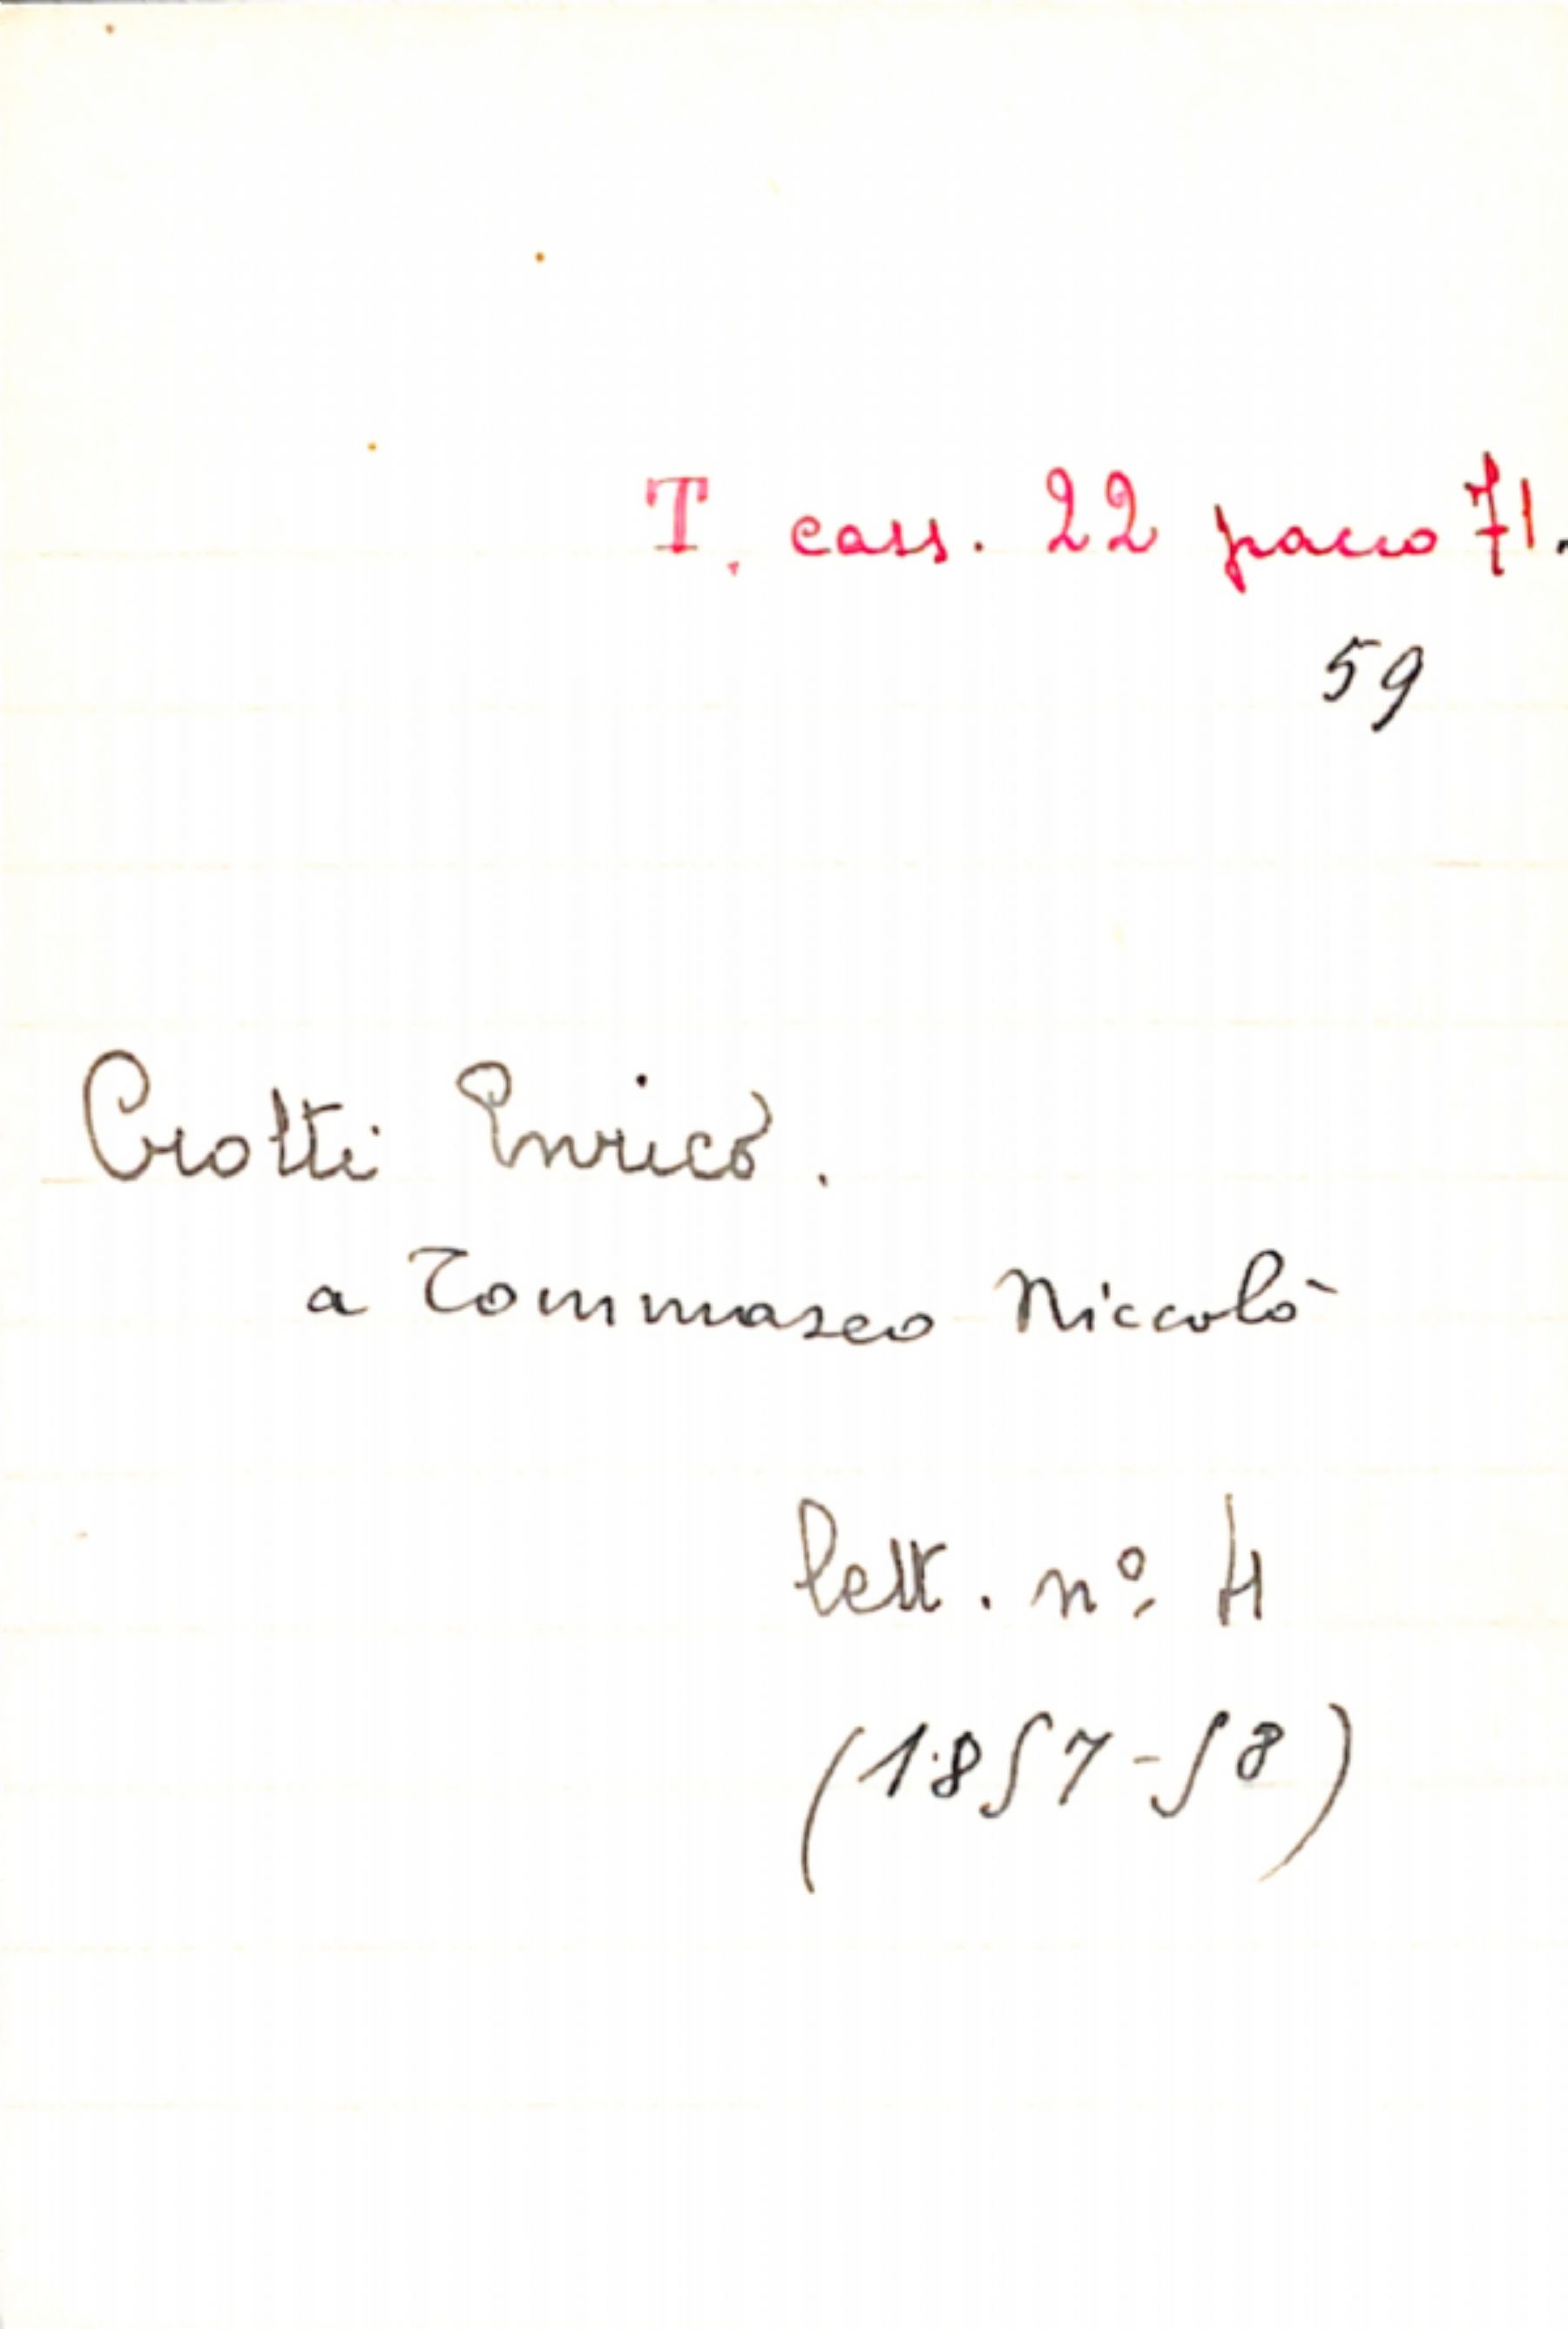 T. cass. 22 pacco 71.
59
Crotti Enrico.
a Tommaseo Niccolò
lett. nº 4
(1857-58)